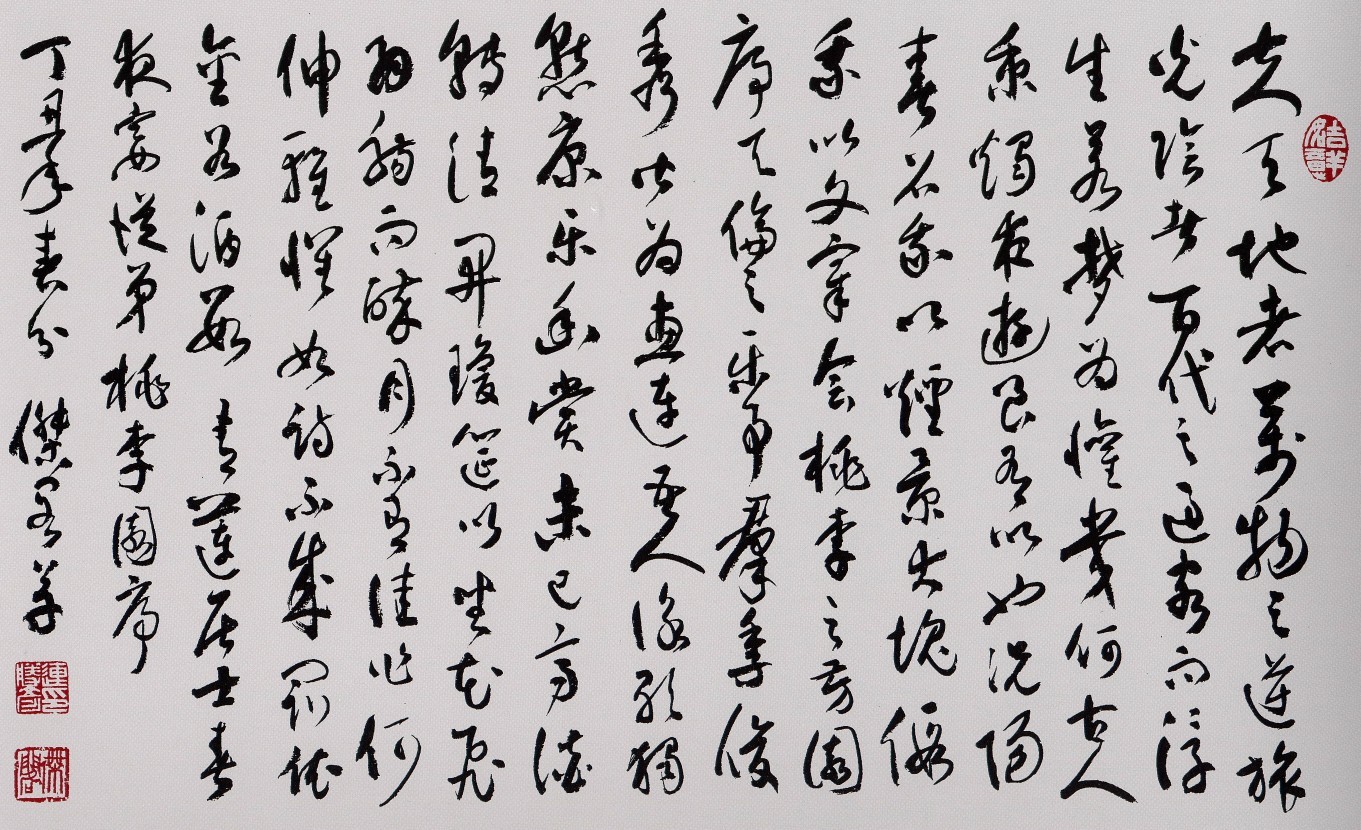 夫天地者萬物之逆旅
光陰者百代之過客而浮
生若夢為懽幾何古人
秉燭夜遊良有以也況陽
春召我以煙景大塊假
我以文章会桃李之芳園
序天倫之樂事羣季俊
秀皆為惠連吾人詠歌獨
慙康樂幽賞未已高談
轉清開瓊筵以坐花飛
羽觴而醉月不有佳作何
伸雅懷如詩不成罰依
金谷酒數 青蓮居士春
夜宴從弟桃李園序
丁丑年春分 傑